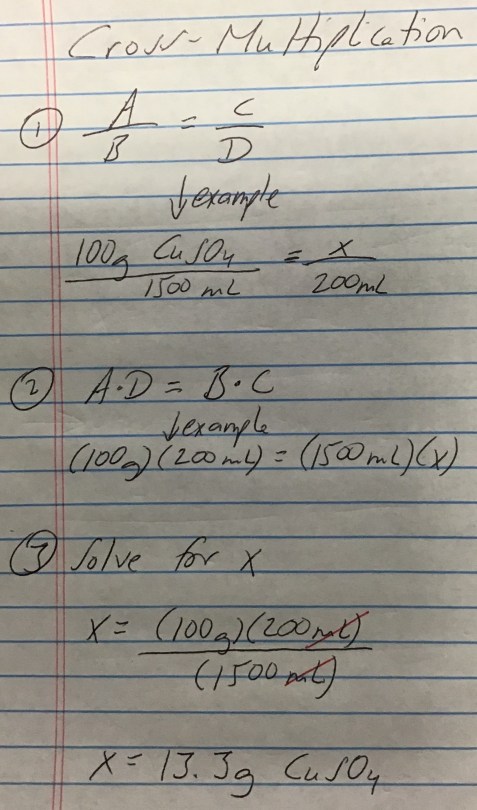 Cross-Multiplication
① A/B = C/D
↓ example
100g CuSO₄/1500 mL = x/200mL
② A·D = B·C
↓ example
(100g)(200mL) = (1500mL)(x)
③ Solve for x
x = (100g)(200mL)/(1500mL)
x = 13.3g CuSO₄